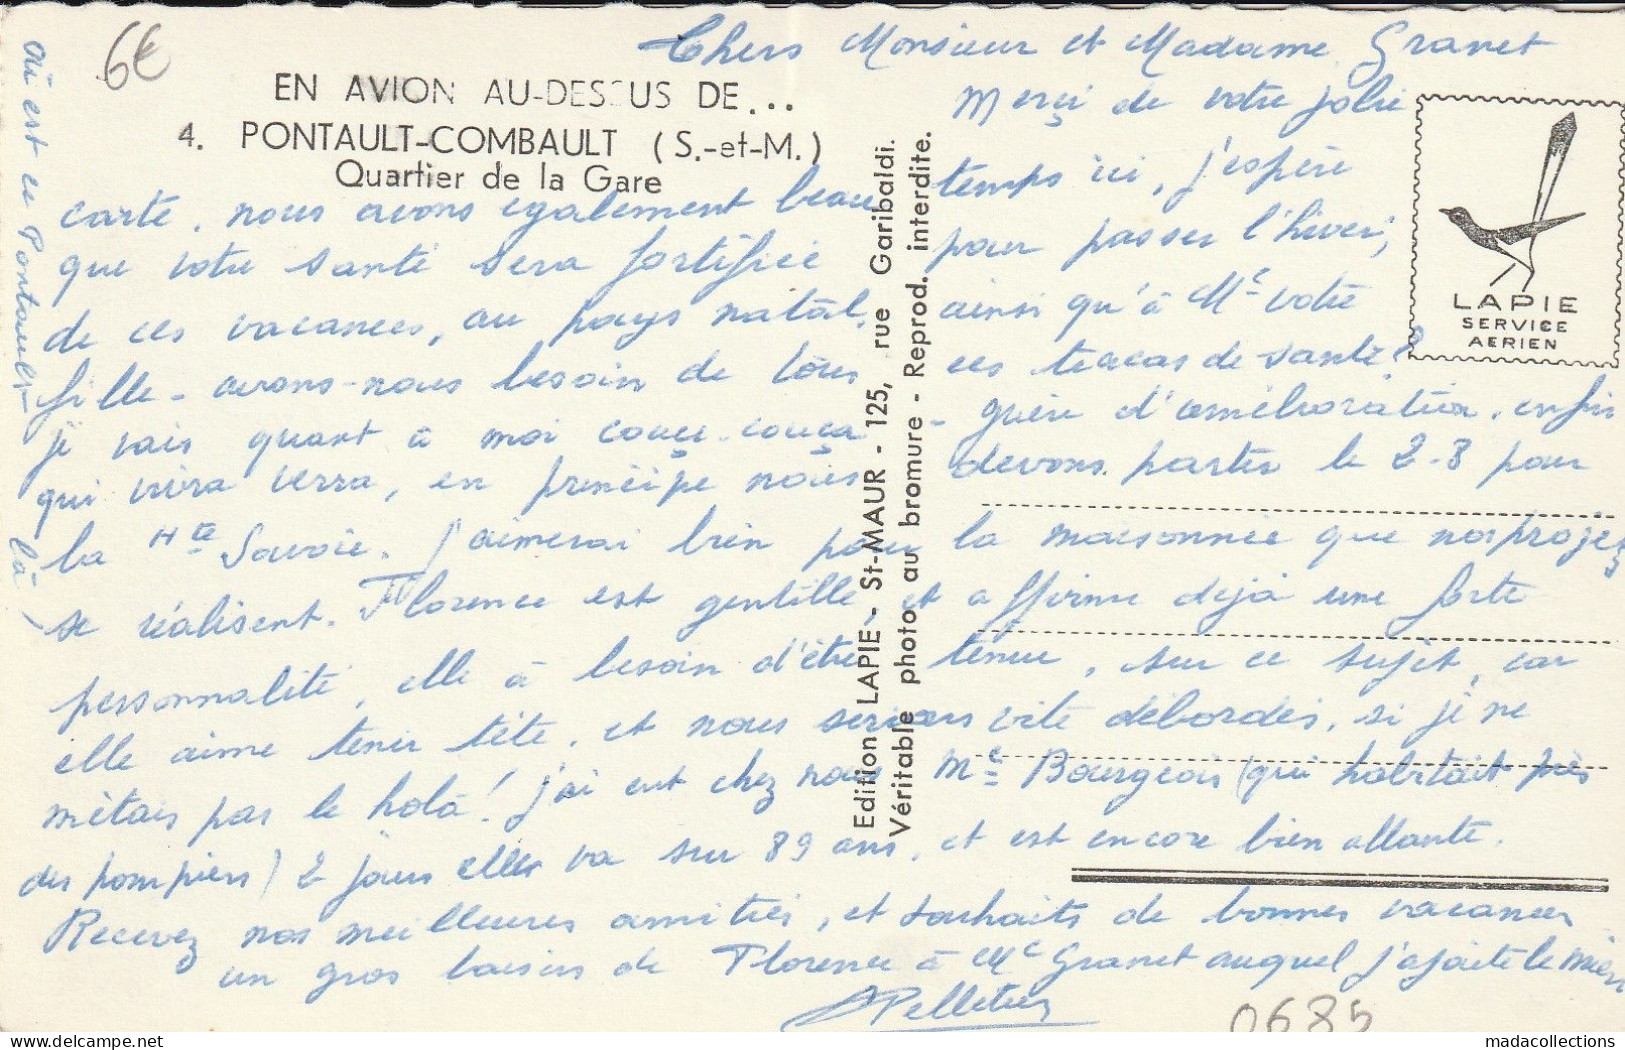 6€
Chers Monsieur et Madame Granet
EN AVION AU-DESSUS DE...
4. PONTAULT-COMBAULT (S.-et-M.)
Quartier de la Gare
Merçi de votre jolie
carte, nous avons egalement beau temps ici, j'espère
que votre santé sera fortifiée pour passer l'hiver,
de ces vacances, au pays natal, ainsi qu'à Me votre
fille - avons-nous besoin de tous ces tracas de santé?
je vais quant à moi couçi-couça - guère d'amélioration, enfin
qui vivra verra, en principe nous devons partir le 2-8 pour
la Hte Savoie. J'aimerai bien pour la maisonnée que nos projez
se réalisent. Florence est gentille et affirme dejà une forte
personnalité, elle à besoin d'être tenue, sur ce sujet, car
elle aime tenir tête, et nous serions vite débordés, si je ne
mètais pas le holà! j'ai eut chez nous Me Bourgeois (qui habitait près
des pompiers) 2 jours elle va sur 89 ans, et est encore bien allante.
Recevez nos meilleures amitiés, et souhaits de bonnes vacances
un gros baisers de Florence à Me Granet auquel j'ajoute le mien
Pelletier
où est ce Pontault là
Edition LAPIE - St-MAUR - 125, rue Garibaldi.
Véritable photo au bromure - Reprod. interdite.
LAPIE
SERVICE
AERIEN
0685
madacollections
delcampe.net